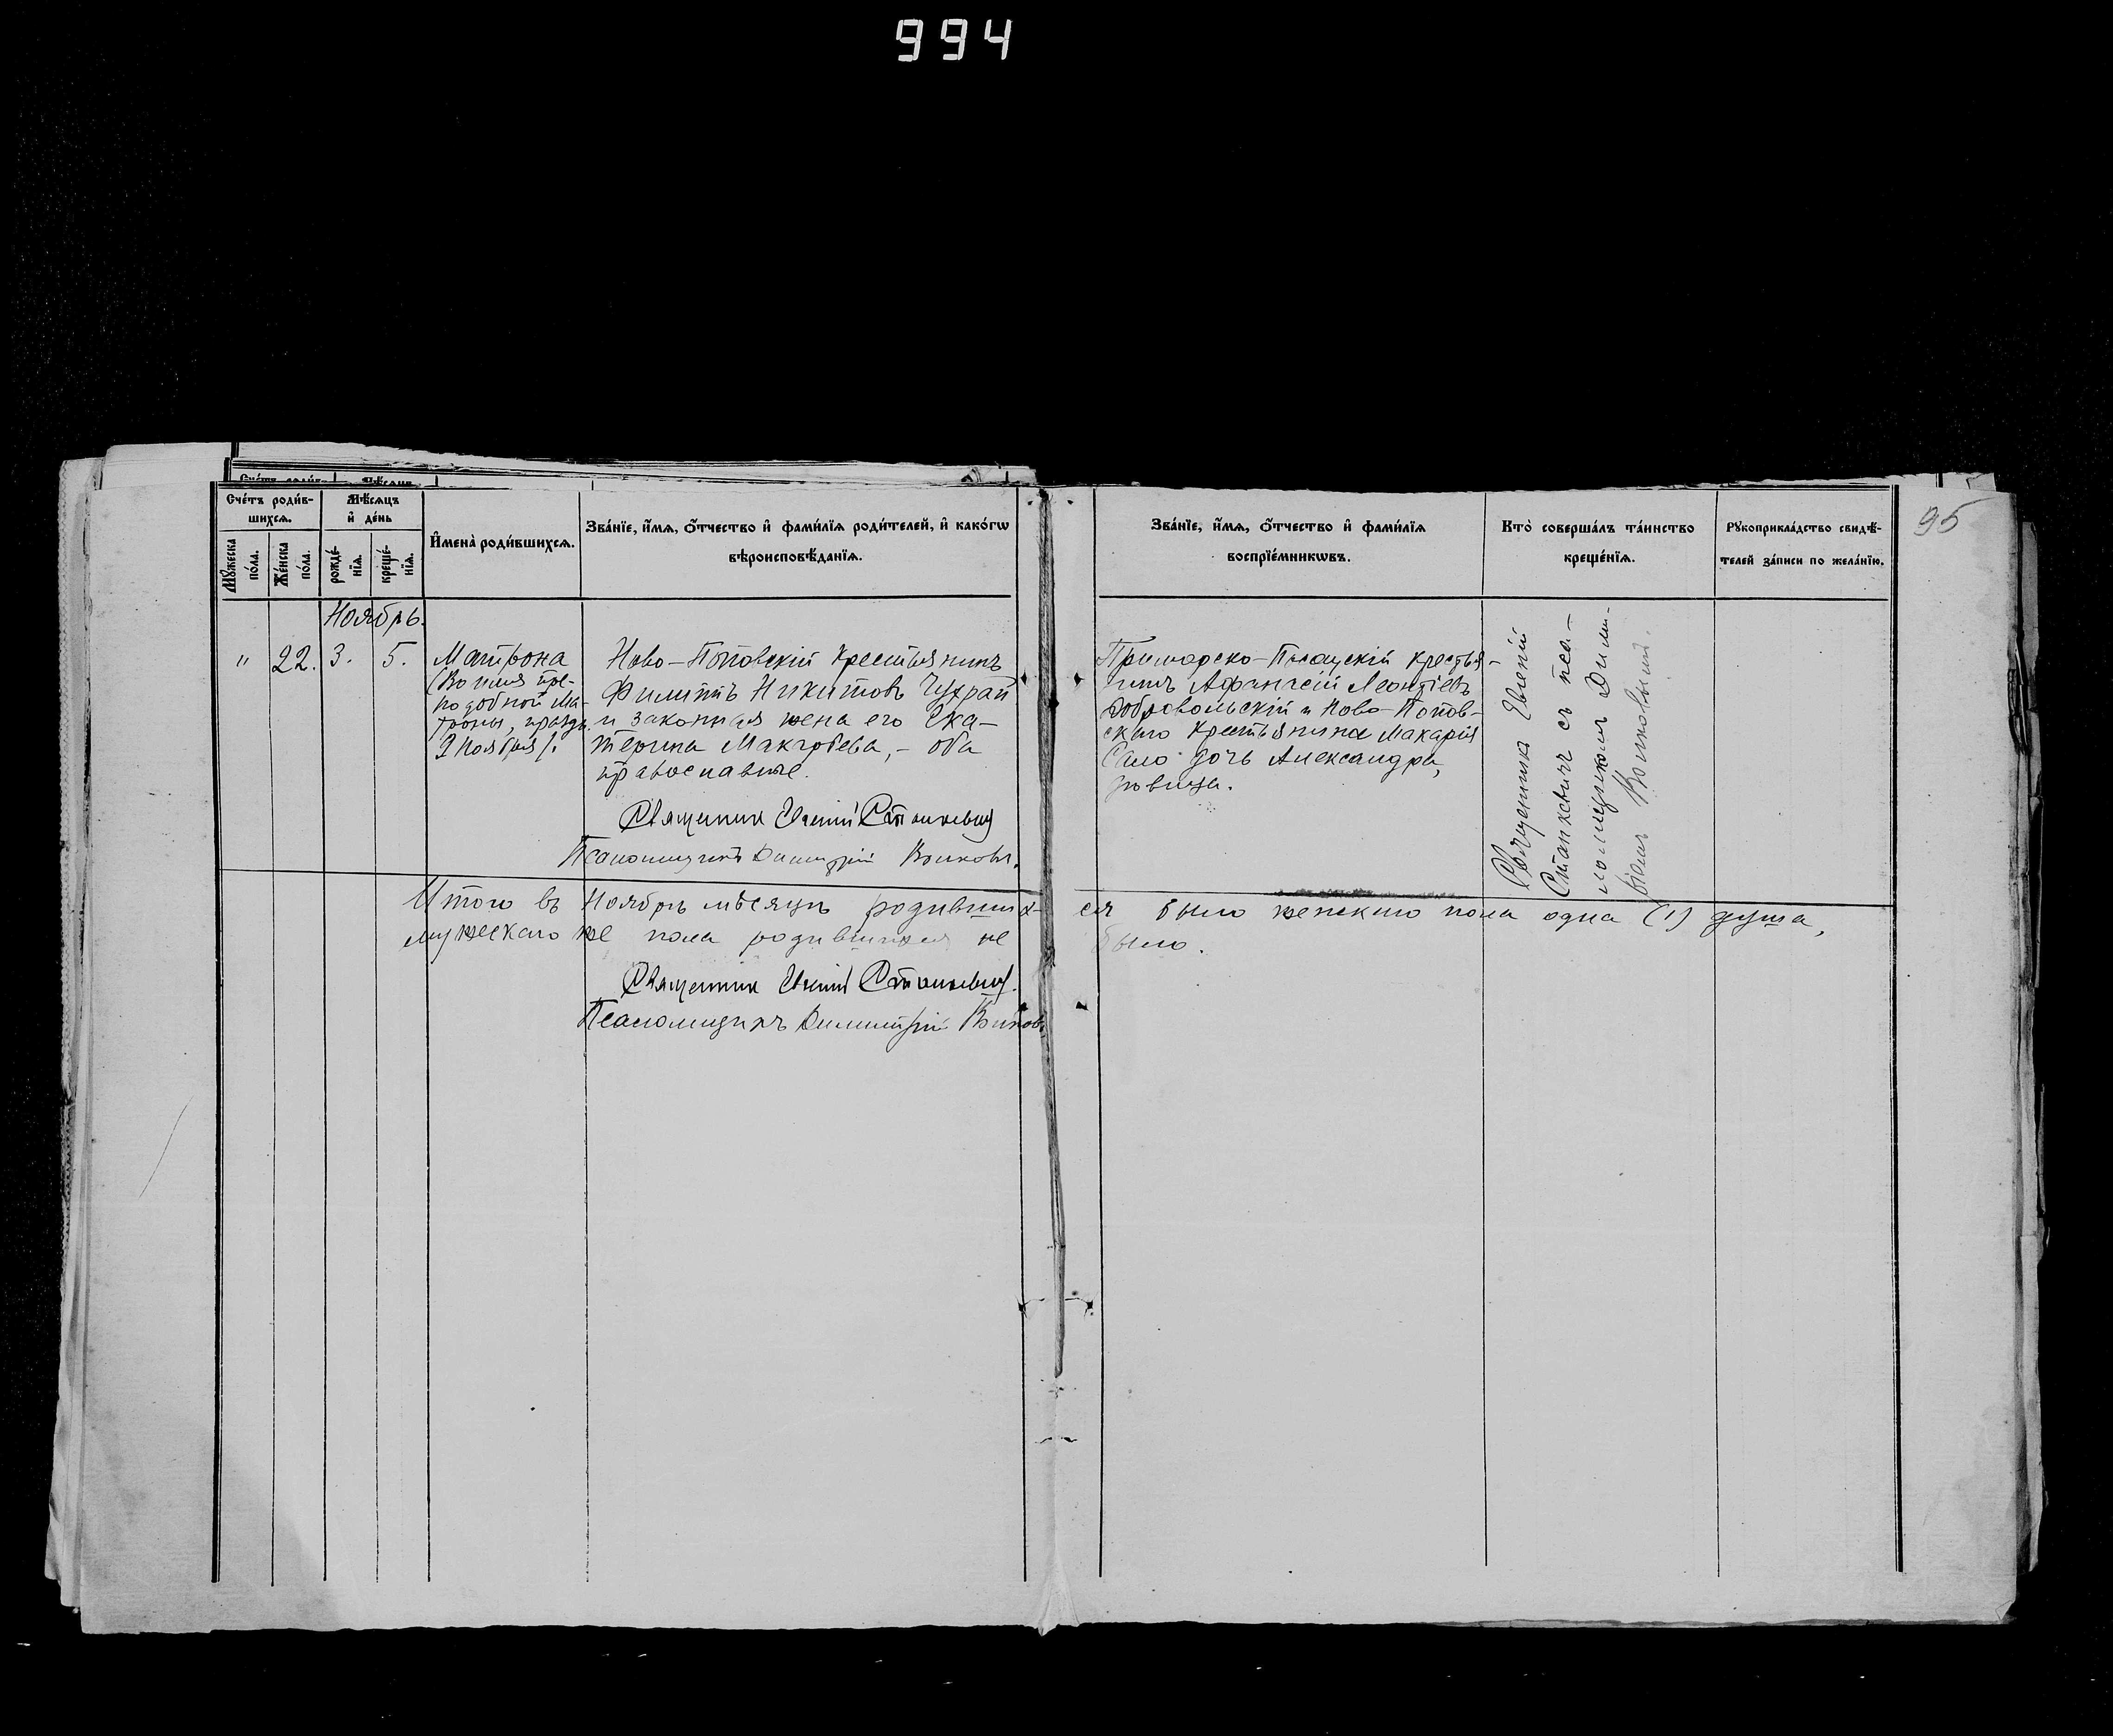 994
95
Счетъ родив-
шихся.
Мѣсяцъ
и день
Мужеска
пола.
Женска
пола.
рожде-
нія.
креще-
нія.
Имена родившихся.
Званіе, имя, отчество и фамилія родителей, и какогѡ
вѣроисповѣданія.
Званіе, имя, отчество и фамилія
воспріемникѡвъ.
Кто совершалъ таинство
крещенія.
Рукоприкладство свидѣ-
телей записи по желанію.
Ноябрь.
" 22. 3. 5.
Матрона
(Во имя пре-
подобной Ма-
троны, празд.
9 Ноября).
Ново-Поповскій крестьянинъ
Филиппъ Никитовъ Чухрай
и законная жена его Ека-
терина Макарова, - оба
православные.
Священникъ Евгеній Станкевичъ
Псаломщикъ Димитрій Волковъ.
Приморско- крестья-
нинъ Афанасій Леонтіевъ
Добровольскій и Ново-Попов-
скаго крестьянина Макарія
Сало дочь Александра,
дѣвица.
Священникъ Евгеній
Станкевичъ съ пса-
ломщикомъ Дими-
тріемъ Волковымъ.
Итого въ Ноябрѣ мѣсяцѣ родивших-
ся было женскаго пола одна (1) душа,
мужескаго же пола родившихся не
было.
Священникъ Евгеній Станкевичъ.
Псаломщикъ Димитрій Волковъ